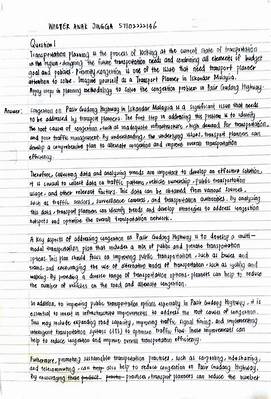 WALTER ANAK JINGGA
Question 1
Transportation Planning is the process of looking at the current state of transportation
in the region, designing the future transportation needs and combining all elements of budget
goal and policies. Proximity congestion is one of the issue that need transport planner
attention to solve. Imagine yourself as a Transport Planner in Iskandar Malaysia.
Apply steps in planning methodology to solve the congestion problem in Pasir Gudang Highway.
Answer: Congestion on Pasir Gudang Highway in Iskandar Malaysia is a significant issue that needs
to be addressed by transport planners. The first step in addressing this problem is to identify
the root causes of congestion, such as inadequate infrastructure, high demand for transportation,
and poor traffic management. By understanding the underlying issues, transport planners can
develop a comprehensive plan to alleviate congestion and improve overall transportation
efficiency.
Therefore, collecting data and analyzing trends are important to develop an effective solution,
it is crucial to collect data on traffic patterns, vehicle ownership, public transportation
usage, and other relevant factors. This data can be obtained from various sources,
such as traffic sensors, surveillance cameras, and transportation authorities. By analyzing
this data, transport planners can identify trends and develop strategies to address congestion
hotspots and optimize the overall transportation network.
A key aspects of addressing congestion on Pasir Gudang Highway is to develop a multi-
modal transportation plan that includes a mix of public and private transportation
options. This plan should focus on improving public transportation, such as buses and
trains, and encouraging the use of alternative modes of transportation, such as cycling and
walking. By providing a diverse range of transportation options, planners can help to reduce
the number of vehicles on the road and alleviate congestion.
In addition, to improving public transportation options especially in Pasir Gudang Highway, it is
essential to invest in infrastructure improvements to address the root causes of congestion.
This may include expanding road capacity, improving traffic signal timing, and implementing
intelligent transportation systems (ITS) to optimize traffic flow. These improvement can
help to reduce congestion and improve overall transportation efficiency.
Furthermore, promoting sustainable transportation practices, such as carpooling, ridesharing,
and telecommuting, can help also help to reduce congestion on Pasir Gudang Highway.
By encouraging these practices, transport planners can reduce the number